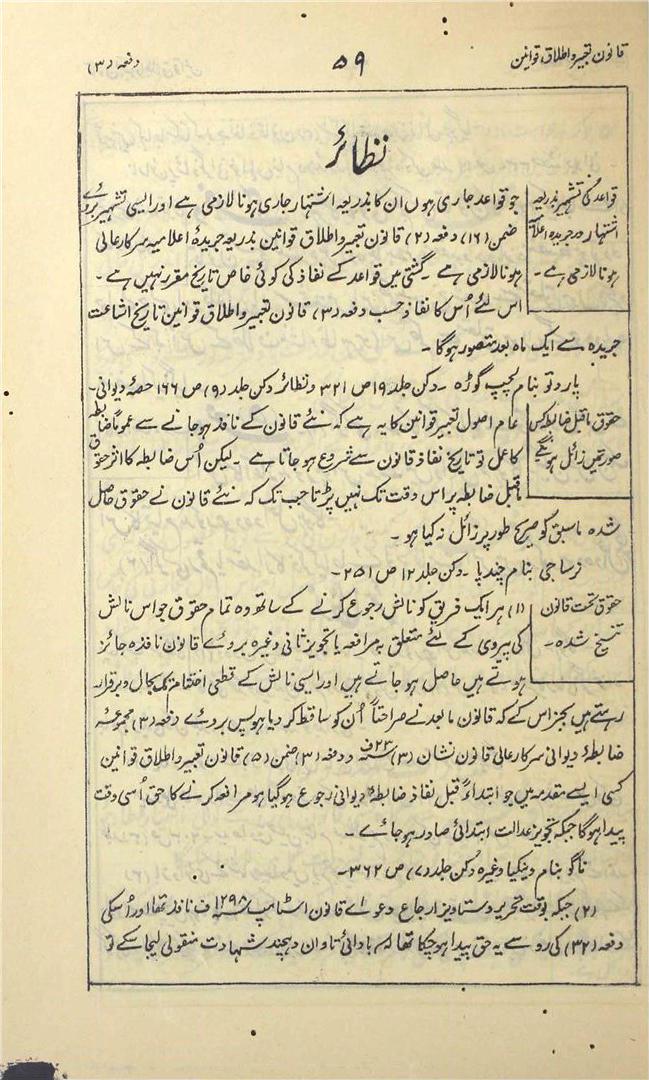 قانون تعبیر و اطلاق قوانین
۵۹
دفعہ (۳)
نظائر
قواعد کی تشہیر بذریعہ
اشتہار در جریدہ اعلامیہ
ہونا لازمی ہے۔
جو قواعد جاری ہوں ان کا بذریعہ اشتہار جاری ہونا لازمی ہے اور ایسی تشہیر بروئے
ضمن (۱۶) دفعہ (۲) قانون تعبیر و اطلاق قوانین بذریعہ جریدۂ اعلامیہ سرکار عالی
ہونا لازمی ہے۔ گشتی میں قواعد کے نفاذ کی کوئی خاص تاریخ مقرر نہیں ہے۔
اس لئے اُس کا نفاذ حسب دفعہ (۳) قانون تعبیر و اطلاق قوانین تاریخ اشاعت
جریدہ سے ایک ماہ بعد متصور ہوگا۔
پاردتو بنام لچپ گوڑہ۔ دکن جلد ۱۹ ص ۳۲۱ و نظائر دکن جلد (۹) ص ۱۶۶ حصۂ دیوانی۔
حقوق ماقبل ضابطہ کس
صورت میں زائل ہونگے
عام اصول تعبیر قوانین کا یہ ہے کہ نئے قانون کے نافذ ہو جانے سے عموماً ضابطہ
کا عمل تو تاریخ نفاذ قانون سے شروع ہو جاتا ہے۔ لیکن اُس ضابطہ کا اثر حقوق
ماقبل ضابطہ پر اس وقت تک نہیں پڑتا جب تک کہ نئے قانون نے حقوق حاصل
شدہ ماسبق کو صریح طور پر زائل نہ کیا ہو۔
نرساجی بنام چندپا۔ دکن جلد ۱۲ ص ۲۵۱۔
حقوق تحت قانون
تنسیخ شدہ۔
(۱) ہر ایک فریق کو نالش رجوع کرنے کے ساتھ وہ تمام حقوق جو اس نالش
کی پیروی کے لئے متعلق بہ مرافعہ یا تجویز ثانی وغیرہ بروئے قانون نافذہ جائز
ہوتے ہیں حاصل ہو جاتے ہیں اور ایسی نالش کے قطعی اختتام تک بحال و برقرار
رہتے ہیں بجز اس کے کہ قانون مابعد نے صراحتاً اُن کو ساقط کر دیا ہو پس بروئے دفعہ (۳) مجموعۂ
ضابطۂ دیوانی سرکار عالی قانون نشان (۳) ۱۳۲۳ف و دفعہ (۳) ضمن (۵) قانون تعبیر و اطلاق قوانین
کسی ایسے مقدمہ میں جو ابتداءً قبل نفاذ ضابطۂ دیوانی رجوع ہوگیا ہو مرافعہ کرنے کا حق اُسی وقت
پیدا ہوگا جبکہ تجویز عدالت ابتدائی صادر ہو جائے۔
ناگو بنام وینکیا وغیرہ دکن جلد (۷) ص ۳۶۲۔
(۲) جبکہ بوقت تحریر دستاویز ارجاع دعوے قانون اسٹامپ ۱۲۹۸ف نافذ تھا اور اُسکی
دفعہ (۳۲) کی رو سے یہ حق پیدا ہو چکا تھا کہ بادائی تاوان دہچند شہادت منقولی لیجا سکے تو